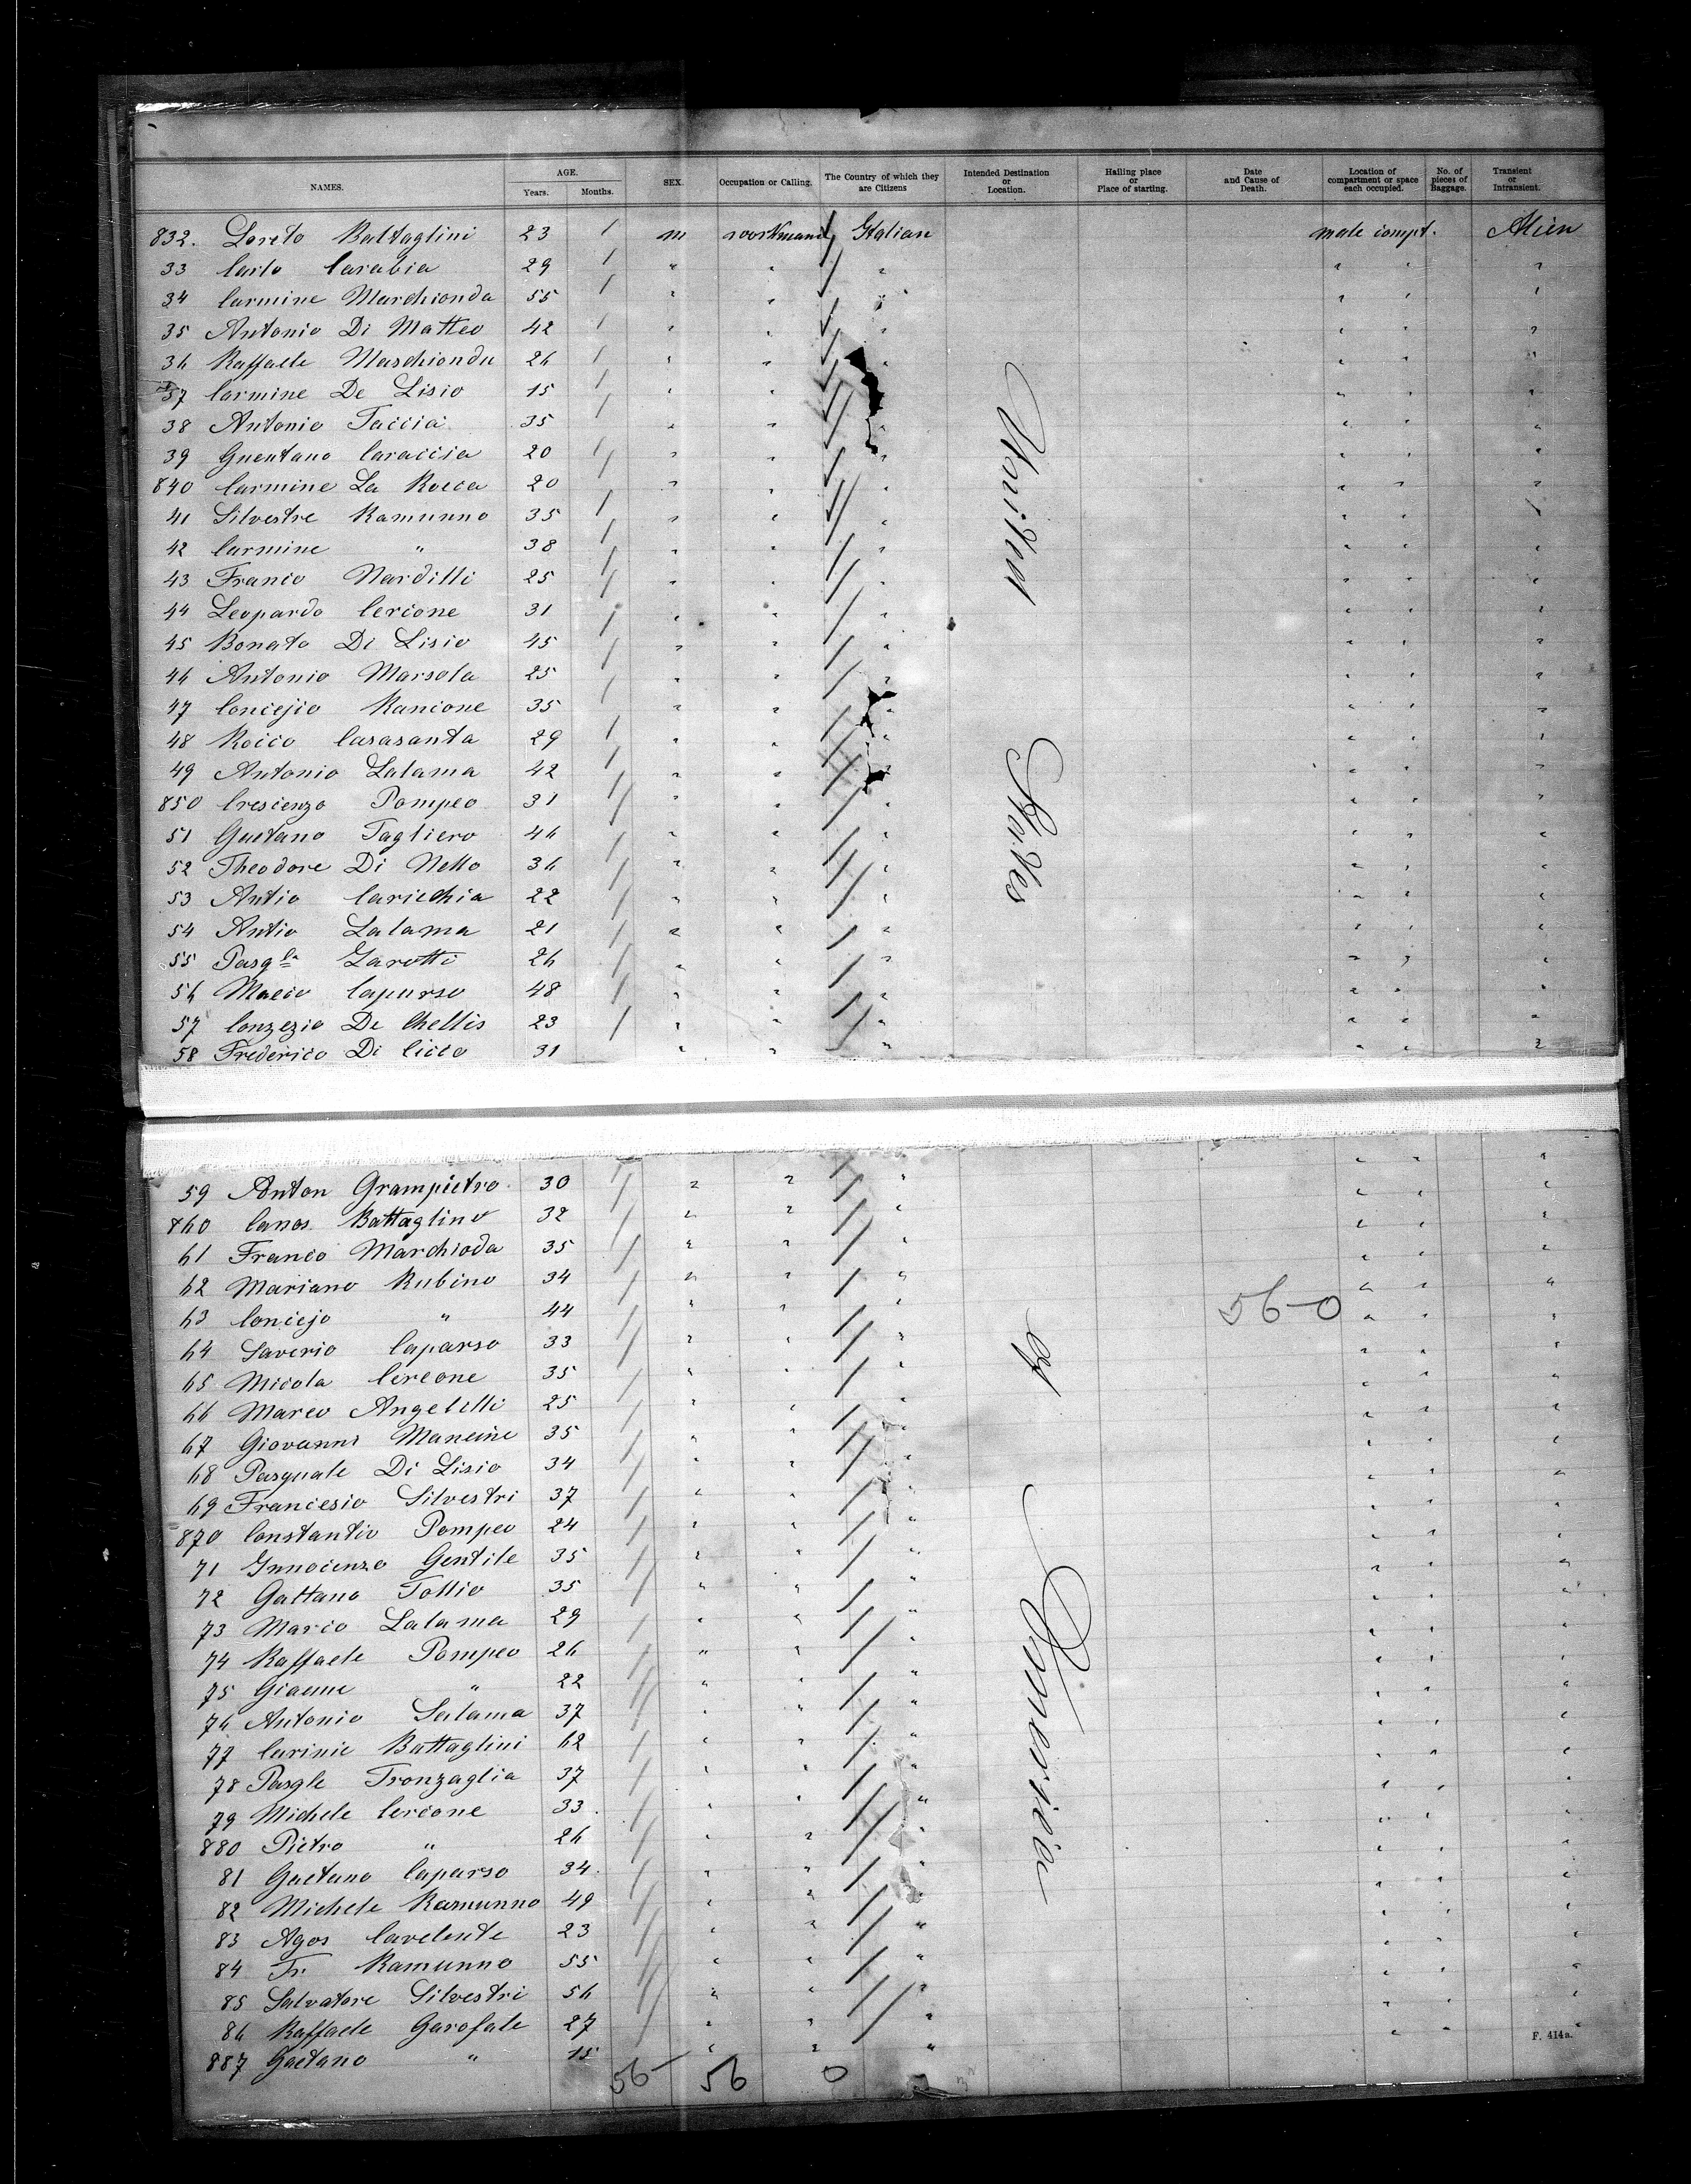 NAMES. AGE. Years. Months. SEX. Occupation or Calling. The Country of which they are Citizens Intended Destination or Location. Hailing place or Place of starting. Date and Cause of Death. Location of compartment or space each occupied. No. of pieces of Baggage. Transient or Intransient.
832. Loreto Battaglini 23 m workmand Italian male compt. Alien
33 Carlo Carabia 29
34 Carmine Marchionda 55
35 Antonio Di Matteo 42
36 Raffaele Maschionda 26
37 Carmine De Lisio 15
38 Antonio Taccia 35
39 Guentano Caraccia 20
840 Carmine La Rocca 20
41 Silvestre Ramunno 35
42 Carmine " 38
43 Franco Nardilli 25
44 Leopardo Cercone 31
45 Bonato Di Lisio 45
46 Antonio Marsola 25
47 Concejio Rancone 35
48 Rocco Casasanta 29
49 Antonio Lalama 42
850 Crescenzo Pompeo 31
51 Guetano Tagliero 46
52 Theodore Di Nello 36
53 Antio Caricchia 22
54 Antio Lalama 21
55 Pasqle Garotti 26
56 Macio Capurso 48
57 Conzezio De Chellis 23
58 Frederico Di Cicco 31
59 Anton Grampietro 30
860 Canos Battaglino 32
61 Franco Marchioda 35
62 Mariano Rubino 34
63 Concejo " 44
64 Saverio Caparso 33
65 Nicola Cercone 35
66 Marco Angelilli 25
67 Giovanni Mancine 35
68 Pasquale Di Lisio 34
69 Francesio Silvestri 37
870 Constantio Pompeo 24
71 Innocenzo Gentile 35
72 Gattano Tollio 35
73 Mario Lalama 29
74 Raffaele Pompeo 26
75 Giacme " 22
76 Antonio Salama 37
77 Carinie Battaglini 62
78 Pasgle Tronzaglia 37
79 Michele Cercone 33
880 Pietro " 26
81 Gaetano Caparso 34
82 Michele Ramunno 49
83 Agos Cavelente 23
84 Fr. Ramunno 55
85 Salvatore Silvestri 56
86 Raffaele Garofale 27
887 Gaetano " 15
United States of America
56-0
56 56 0
F. 414a.